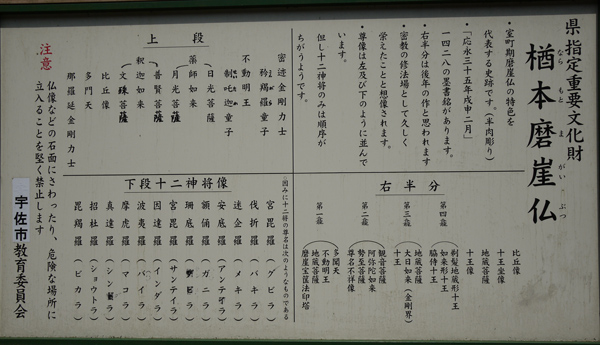 県指定重要文化財
楢本磨崖仏
なら もと ま がい ぶつ
・室町期磨崖仏の特色を
代表する史跡です。(半肉彫り)
・「応永三十五年戊申二月」
一四二八の墨書銘があります。
・右半分は後年の作と思われます
・密教の修法場として久しく
栄えたことと想像されます。
・尊像は左及び下のように並んで
います。
但し十二神将のみは順序が
ちがうようです。
上段
密迹金剛力士
矜羯羅童子
不動明王
制吒迦童子
日光菩薩
薬師如来
月光菩薩
普賢菩薩
釈迦如来
文殊菩薩
比丘像
多門天
那羅延金剛力士
右半分
比丘像
十王坐像
地蔵菩薩
十王像
第四龕
剃髪地蔵形十王
如来形十王
脇侍十王
第三龕
地蔵菩薩
大日如来(金剛界)
十王
第二龕
観音菩薩
阿弥陀如来
勢至菩薩
尊名不祥像
第一龕
多聞天
不動明王
地蔵菩薩
磨崖宝篋法印塔
下段十二神将像
※因みに十二将の尊名は次のようなものである
宮毘羅(グビラ)
伐折羅(バキラ)
迷企羅(メキラ)
安底羅(アンテイラ)
額儞羅(ガニラ)
珊底羅
宮毘羅(サンテイラ)
因達羅(インダラ)
波夷羅(バイラ)
摩虎羅(マコラ)
真達羅(シンダラ)
招杜羅(ショウトラ)
毘羯羅(ビカラ)
注意
仏像などの石面にさわったり、危険な場所に
立入ることを堅く禁止します
宇佐市教育委員会